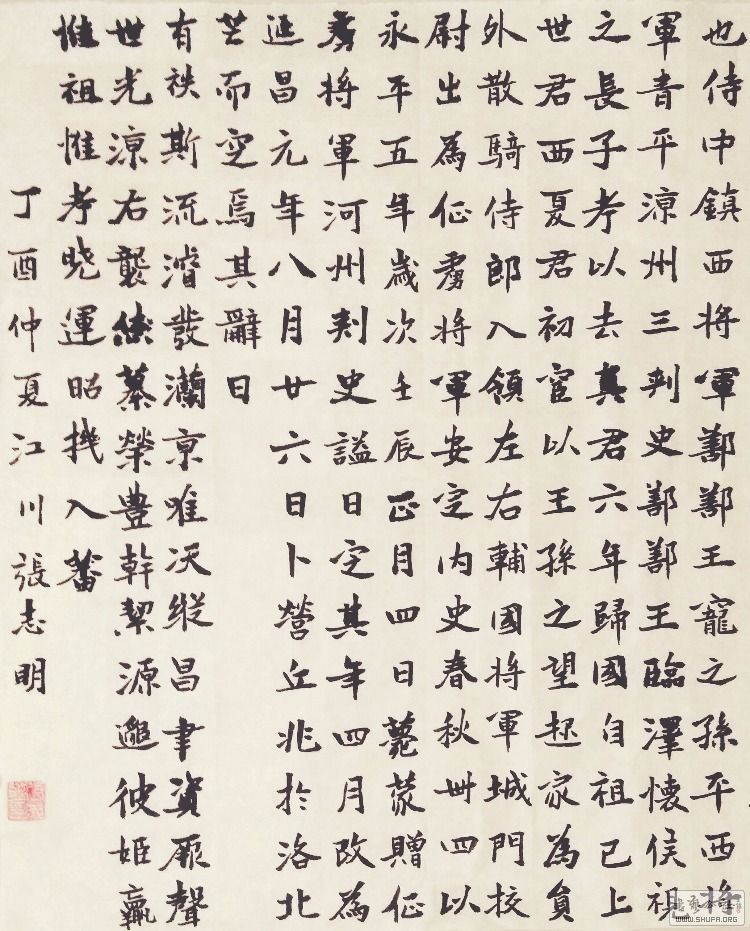 也侍中鎮西將軍鄯鄯王寵之孫平西將
軍青平涼州三刺史鄯鄯王臨澤懷侯視
之長子考以去真君六年歸國自祖已上
世君西夏君初宦以王孫之望起家為員
外散騎侍郎入領左右輔國將軍城門校
尉出為征虜將軍安定內史春秋卌四以
永平五年歲次壬辰正月四日薨蒙贈征
虜將軍河州刺史謚曰定其年四月改為
延昌元年八月廿六日卜營丘兆於洛北
芒而窆焉其辭曰
有秩斯流濬發蘭京唯天縱昌聿資厥聲
世光涼右襲休綦榮豊幹絜源邈彼姬嬴
惟祖惟考曉運昭機入蕃
丁酉仲夏江川張志明
WWW.SHUFA.ORG